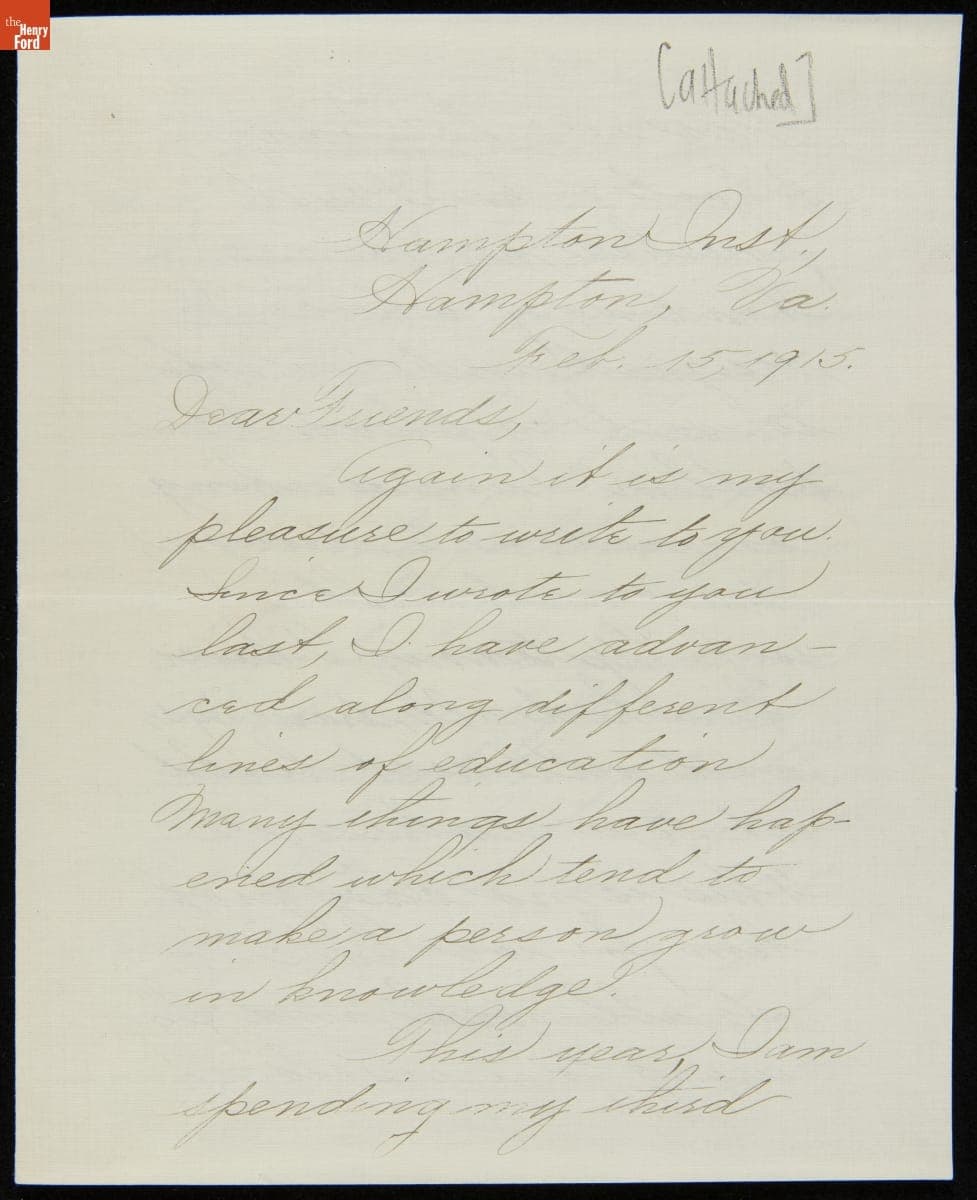 the
Henry
Ford
[attached]
Hampton Inst.,
Hampton, Va.
Feb. 15, 1915.
Dear Friends,
Again it is my
pleasure to write to you.
Since I wrote to you
last, I have advan-
ced along different
lines of education
Many things have hap-
ened which tend to
make a person grow
in knowledge.
This year, I am
spending my third